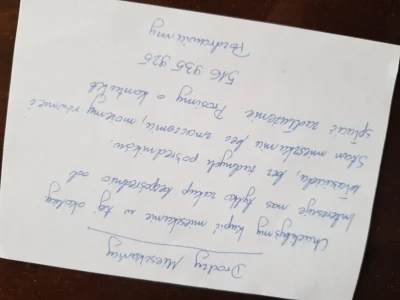 Drodzy Mieszkańcy
Chcielibyśmy kupić mieszkanie w tej okolicy
Interesuje nas tylko zakup bezpośrednio od
właściciela, bez żadnych pośredników.
Stan mieszkania bez znaczenia, możemy również
spłacić zadłużenie. Prosimy o kontakt
516 935 925
Pozdrawiamy